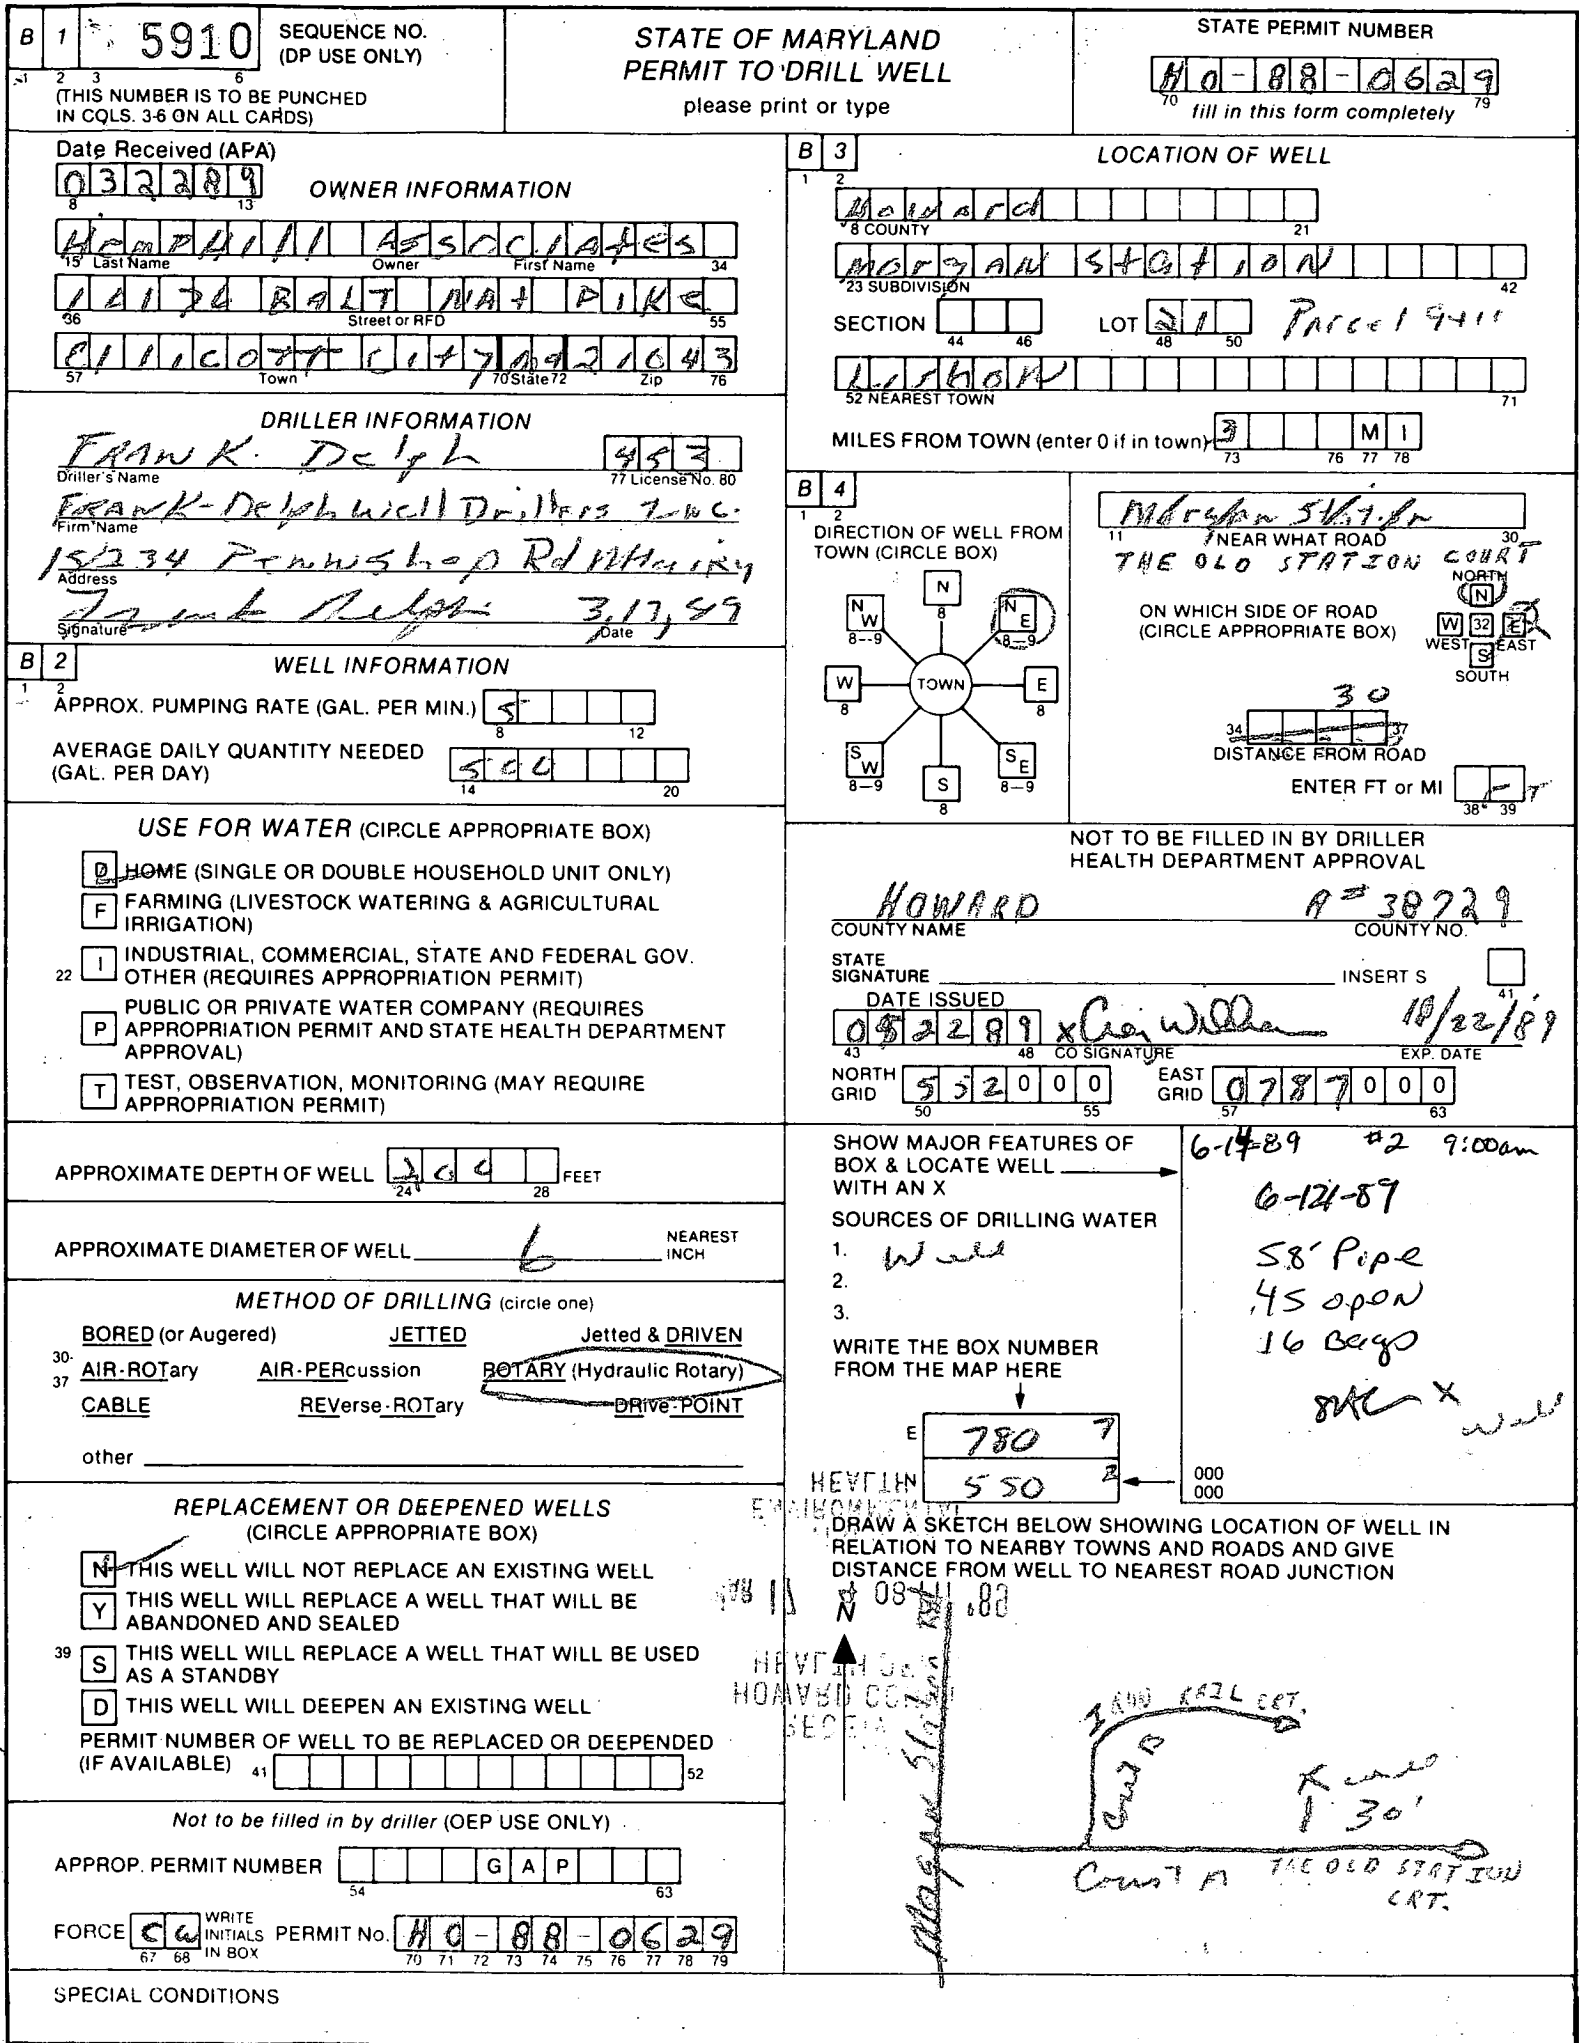 B 1 5910 SEQUENCE NO.
(DP USE ONLY)
1 2 3 6
(THIS NUMBER IS TO BE PUNCHED
IN COLS. 3-6 ON ALL CARDS)
STATE OF MARYLAND
PERMIT TO DRILL WELL
please print or type
STATE PERMIT NUMBER
HO-88-0629
70 79
fill in this form completely
Date Received (APA)
032289
8 13
OWNER INFORMATION
Hemphill Associates
15 Last Name Owner First Name 34
BALT NAt PIKe
36 Street or RFD 55
Ellicott City Md 21043
57 Town 70 State 72 Zip 76
DRILLER INFORMATION
FRANK. Delph 453
Driller's Name 77 License No. 80
FRANK-Delph well Drillers Inc.
Firm Name
Rd
Address
Frank Delph 3,17,89
Signature Date
B 2 WELL INFORMATION
1 2
APPROX. PUMPING RATE (GAL. PER MIN.) 5
8 12
AVERAGE DAILY QUANTITY NEEDED
(GAL. PER DAY) 500
14 20
USE FOR WATER (CIRCLE APPROPRIATE BOX)
D HOME (SINGLE OR DOUBLE HOUSEHOLD UNIT ONLY)
F FARMING (LIVESTOCK WATERING & AGRICULTURAL
IRRIGATION)
22 I INDUSTRIAL, COMMERCIAL, STATE AND FEDERAL GOV.
OTHER (REQUIRES APPROPRIATION PERMIT)
P PUBLIC OR PRIVATE WATER COMPANY (REQUIRES
APPROPRIATION PERMIT AND STATE HEALTH DEPARTMENT
APPROVAL)
T TEST, OBSERVATION, MONITORING (MAY REQUIRE
APPROPRIATION PERMIT)
APPROXIMATE DEPTH OF WELL 200 FEET
24 28
APPROXIMATE DIAMETER OF WELL 6 NEAREST
INCH
METHOD OF DRILLING (circle one)
BORED (or Augered) JETTED Jetted & DRIVEN
30-
37 AIR-ROTary AIR-PERcussion ROTARY (Hydraulic Rotary)
CABLE REVerse-ROTary DRIve-POINT
other
REPLACEMENT OR DEEPENED WELLS
(CIRCLE APPROPRIATE BOX)
N THIS WELL WILL NOT REPLACE AN EXISTING WELL
Y THIS WELL WILL REPLACE A WELL THAT WILL BE
ABANDONED AND SEALED
39 S THIS WELL WILL REPLACE A WELL THAT WILL BE USED
AS A STANDBY
D THIS WELL WILL DEEPEN AN EXISTING WELL
PERMIT NUMBER OF WELL TO BE REPLACED OR DEEPENDED
(IF AVAILABLE) 41 52
Not to be filled in by driller (OEP USE ONLY)
APPROP. PERMIT NUMBER G A P
54 63
FORCE CW WRITE
INITIALS
IN BOX PERMIT No. HO-88-0629
67 68 70 71 72 73 74 75 76 77 78 79
SPECIAL CONDITIONS
B 3 LOCATION OF WELL
1 2
Howard
8 COUNTY 21
Morgan Station
23 SUBDIVISION 42
SECTION LOT 21 Parcel
44 46 48 50
Lisbon
52 NEAREST TOWN 71
MILES FROM TOWN (enter 0 if in town) 3 M I
73 76 77 78
B 4
1 2
DIRECTION OF WELL FROM
TOWN (CIRCLE BOX)
N
8
NW
8--9
NE
8--9
W
8
TOWN
E
8
SW
8--9
S
8
SE
8--9
Morgan Station
11 NEAR WHAT ROAD 30
THE OLD STATION COURT
NORTH
N
ON WHICH SIDE OF ROAD
(CIRCLE APPROPRIATE BOX)
W 32 E
WEST EAST
S
SOUTH
30
34 37
DISTANCE FROM ROAD
ENTER FT or MI FT
38 39
NOT TO BE FILLED IN BY DRILLER
HEALTH DEPARTMENT APPROVAL
HOWARD A# 38729
COUNTY NAME COUNTY NO.
STATE
SIGNATURE INSERT S
41
DATE ISSUED
052289 10/22/89
43 48 CO SIGNATURE EXP. DATE
NORTH
GRID 532000
50 55
EAST
GRID 0787000
57 63
SHOW MAJOR FEATURES OF
BOX & LOCATE WELL
WITH AN X
SOURCES OF DRILLING WATER
1. Well
2.
3.
WRITE THE BOX NUMBER
FROM THE MAP HERE
E 780 7
550 2
6-14-89 #2 9:00am
58' Pipe
45 open
16 Bags
X
Well
000
000
DRAW A SKETCH BELOW SHOWING LOCATION OF WELL IN
RELATION TO NEARBY TOWNS AND ROADS AND GIVE
DISTANCE FROM WELL TO NEAREST ROAD JUNCTION
N
Morgan Station Rd
RAIL CRT.
Court B
X well
30'
Court A
THE OLD STATION
CRT.